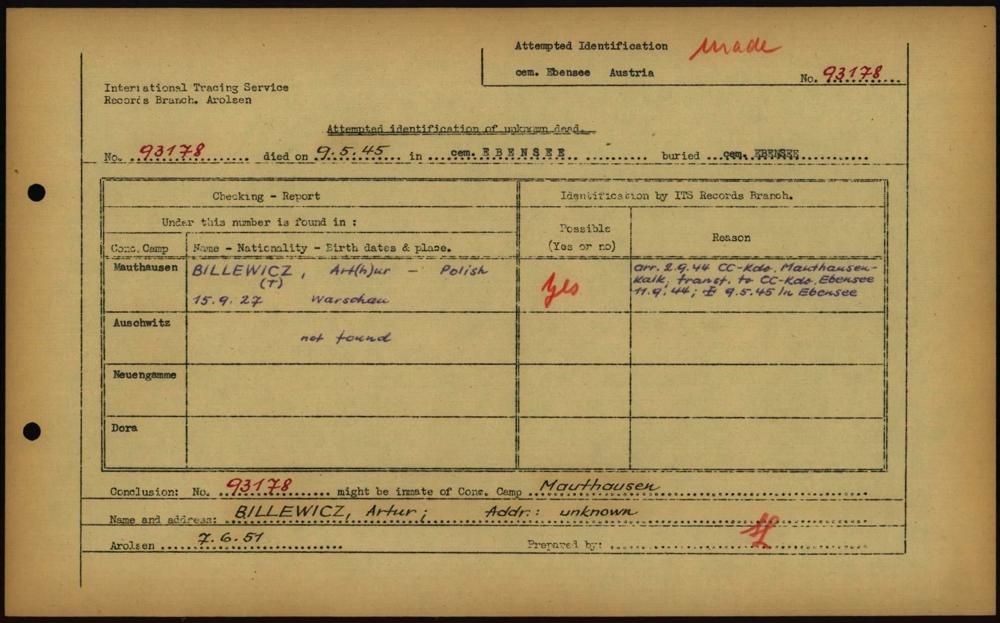 Attempted Identification made
cem. Ebensee Austria No. 93178
International Tracing Service
Records Branch. Arolsen
Attempted identification of unknown dead.
No. 93178 died on 9.5.45 in cem. EBENSEE buried cem. EBENSEE
Checking - Report
Identification by ITS Records Branch.
Under this number is found in :
Possible
(Yes or no)
Reason
Conc. Camp
Name - Nationality - Birth dates & place.
Mauthausen
BILLEWICZ, Art(h)ur - Polish
(T)
15.9.27 Warschau
Yes
arr. 2.9.44 CC-Kdo. Mauthausen-
Kalk; transf. to CC-Kdo. Ebensee
11.9.44; 9.5.45 in Ebensee
Auschwitz
not found
Neuengamme
Dora
Conclusion: No. 93178 might be inmate of Conc. Camp Mauthausen
Name and address: BILLEWICZ, Artur; Addr.: unknown
Arolsen 7.6.51 Prepared by: